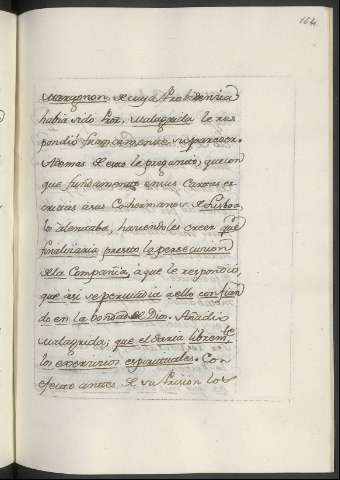 164
Maragnon, de cuya Probidencia
habia sido Pror, Malagrida le res
pondió francamente su parecer.
Ademas de esto le preguntó, que con
que fundamento en sus Cartas es
critas á sus Cohermanos de Lisboa,
lo alentaba, haciendoles creer qe
finalizaria presto la persecucion
de la Compañia, á que le respondió,
que asi se persuadia á ello confian
do en la bondad de Dios. Añadió
Malagrida; que el daria libremte
los exercicios espirituales. Con
efecto antes de su Prision los